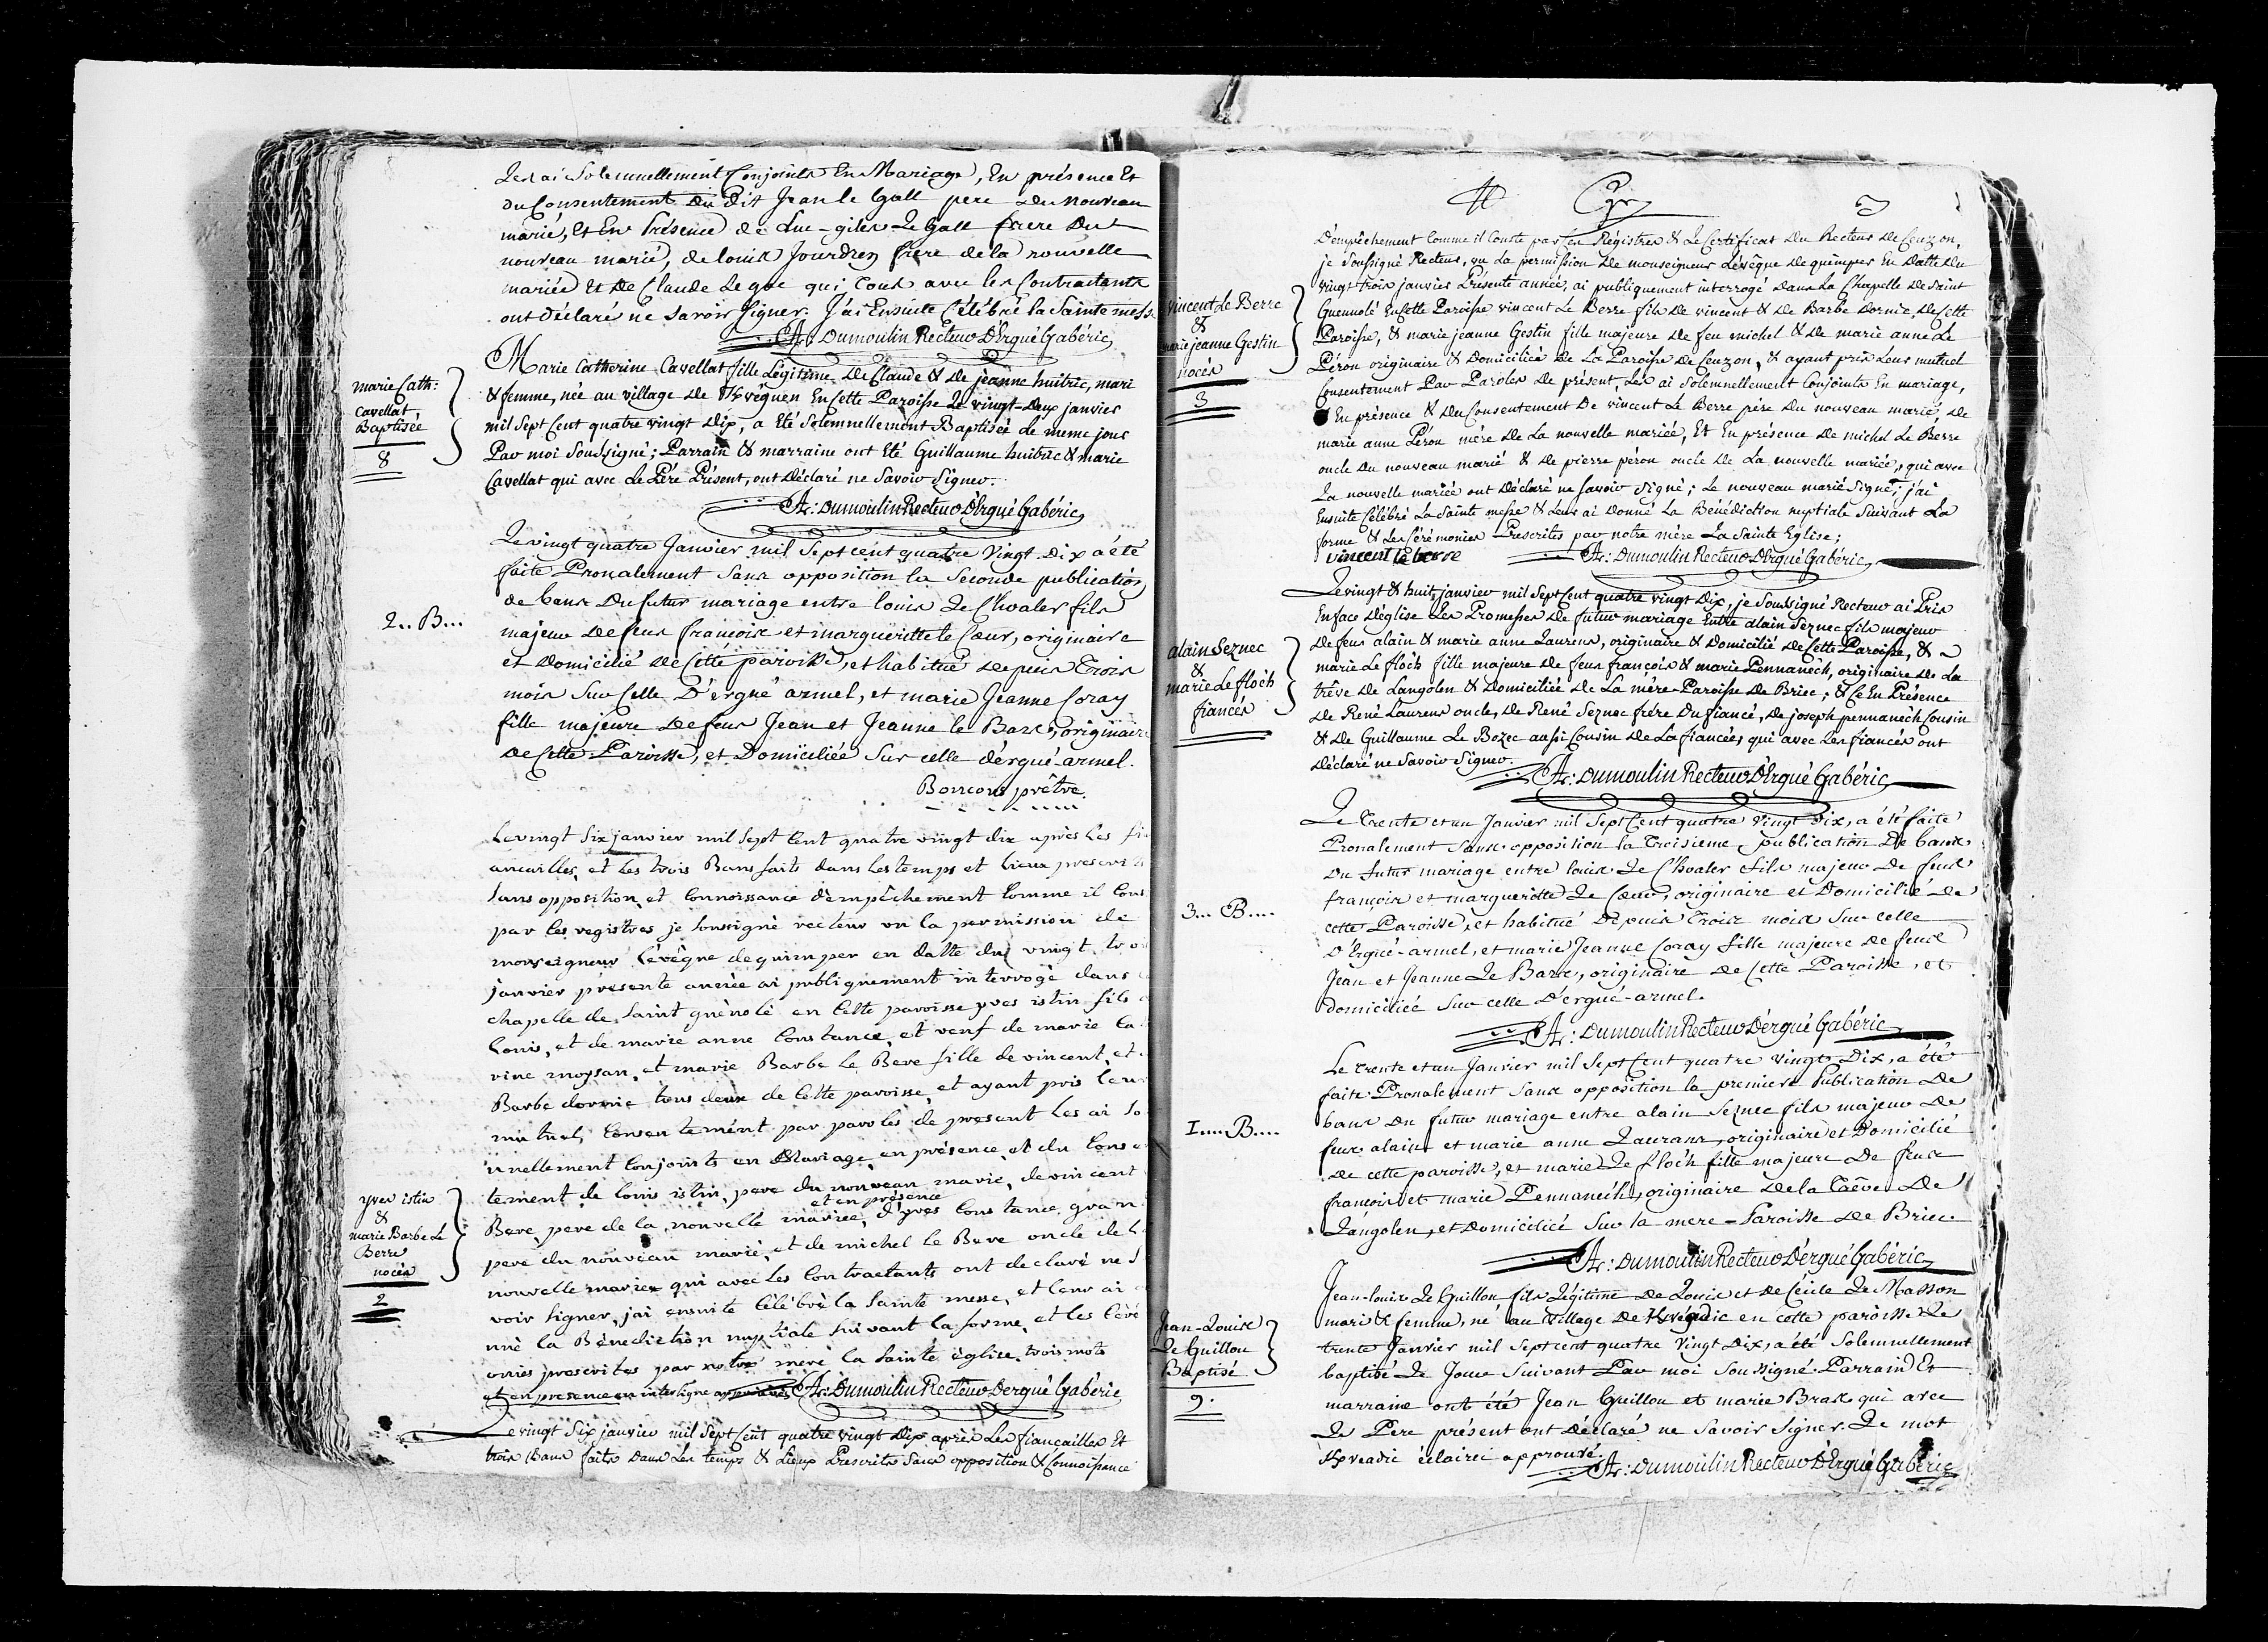 Les ai Solemnellement Conjoints En Mariage, En présence Et
du Consentement du Dit Jean le Gall pere du nouveau
marié, Et En Présence de Luc-giles Le Gall frere Du
nouveau marié, de louis Jourdren frere de la nouvelle
mariée Et De Claude Le goe qui tous avec les Contractants
ont déclaré ne Savoir Signer. J'ai Ensuite Célébré la Sainte mess
A: Dumoulin Recteur D'Ergué Gabéric
marie Cath:
Cavellat
Baptisée
8
Marie Catherine Cavellat fille Légitime De Claude & De jeanne huitric, mari
& femme, née au village de Kvéguen En Cette Paroisse Le vingt-Deux janvier
mil Sept Cent quatre vingt Dix, a Eté Solemnellement Baptisée le meme jour
Par moi Soussigné; Parrain & marraine ont Eté Guillaume huitric & marie
Cavellat qui avec Le Père Présent, ont Déclaré ne Savoir Signer.
A: Dumoulin Recteur D'Ergué Gabéric
2.. B...
Le vingt quatre Janvier mil Sept cent quatre Vingt Dix a été
faite Pronalement Sans opposition la Seconde publication
de bans Du futur mariage entre louis Le C'hoaler fils
majeur de feus francois et margueritte le Cœur, originaire
et Domicilié de Cette paroisse, et habitué depuis Trois
mois Sur Celle D'ergué armel, et marie Jeanne Coray
fille majeure de feus Jean et Jeanne le Bars, originaire
de Cette Paroisse, et Domiciliée Sur celle d'érgué-armel.
prêtre
Le vingt Six janvier mil Sept Cent quatre vingt dix après les fi
ancailles, et les trois Bans faits dans les temps et lieux prescrits
Sans opposition et Connoissance d'empêchement Comme il Cons
par les registres je soussigné recteur vu la permission de
monseigneur l'évêque de quimper en datte du vingt trois
janvier présente année ai publiquement interrogé dans
chapelle de Saint guénolé en Cette paroisse yves istin fils
Louis, et de marie anne Constance, et veuf de marie Ca
rine moysan, et marie Barbe Le Bere fille de vincent, et
Barbe dornic tous deux de Cette paroisse, et ayant pris leur
mutuel Consentement par paroles de present les ai So
mnellement Conjoints en Mariage en présence et du Conse
yves istin
&
marie Barbe Le
Berre
nocés
2
tement de louis istin, pere du nouveau marié, de vincent
et en présence
Bere, pere de la nouvelle mariée, d'yves Constance gran
pere du nouveau marié, et de michel le Bere oncle de l
nouvelle mariée qui avec les Contractants ont declaré ne S
voir Signer, jai ensuite Célébré la Sainte messe, et leur ai
nné la Bénediction nuptiale Suivant la forme, et les Céré
onies prescrites par notre mère la Sainte église. trois mots
et en presence en interligne approuvés A: Dumoulin Recteur Dergué Gabéric
Le vingt Six janvier mil Sept Cent quatre vingt Dix après Les fiancailles Et
trois Bans faits Dans Les temps & Lieux Prescrits Sans opposition & Connoissance
D'empêchement Comme il Conste par Les Régistres & Le Certificat Du Recteur De Cuzon,
je Soussigné Recteur, vu La permission De monseigneur L'évêque De quimper En Datte du
vingt-trois janvier Présente année, ai publiquement interrogé Dans La Chapelle De Saint
vincent Le Berre
&
marie jeanne Gestin
nocés
3
Guennolé En Cette Paroisse vincent Le Berre fils De vincent & De Barbe Dornic, De Cette
Paroisse, & marie jeanne Gestin fille majeure De feu michel & De marie anne Le
Péron originaire & Domiciliée De La Paroisse De Cuzon, & ayant pris Leur mutuel
Consentement Par Paroles De présent, Les ai Solemnellement Conjoints En mariage,
En présence & Du Consentement De vincent Le Berre père Du nouveau marié, De
marie anne Péron mère De La nouvelle mariée, Et En présence De michel Le Berre
oncle Du nouveau marié & De pierre péron oncle De La nouvelle mariée, qui avec
La nouvelle mariée ont Déclaré ne Savoir Signé; Le nouveau marié Signé; j'ai
Ensuite Célébré La Sainte messe & Leur ai Donné La Bénédiction nuptiale Suivant La
forme & Les Cérémonies Prescrites par notre mère La Sainte Eglise;
vincent le berre A: Dumoulin Recteur D'Ergué Gabéric
alain Seznec
&
marie Le floc'h
fiancés
Le vingt & huit janvier mil Sept Cent quatre vingt Dix, je Soussigné Recteur ai Pris
En face D'église Les Promesses De futur mariage Entre alain Seznec fils majeur
De feus alain & marie anne Laurens, originaire & Domicilié De Cette Paroisse, &
marie Le floc'h fille majeure De feus françois & marie Pennanéch, originaire De La
trêve De Langolen & Domiciliée De La mère-Paroisse De Briec; & Ce En Présence
De René Laurens oncle, De René Seznec frère Du fiancé, De joseph pennanéch Cousin
& De Guillaume Le Bozec aussi Cousin De La fiancée, qui avec Les fiancés ont
Déclaré ne Savoir Signer.
A: Dumoulin Recteur D'Ergué Gabéric
3... B....
Le Trente et un Janvier mil Sept Cent quatre Vingt Dix, a été faite
Pronalement Sans opposition la Troisieme publication De bans
Du futur mariage entre louis Le C'hoaler fils majeur De feus
françois et marguerite Le Cœur, originaire et Domicilié De
cette Paroisse, et habitué Depuis Trois mois Sur celle
D'Ergué-armel, et marie Jeanne Coray fille majeure De feus
Jean et Jeanne Le Bars, originaire De Cette Paroisse, et
domiciliée Sur celle D'ergué-armel.
A: Dumoulin Recteur D'érgué Gabéric
1.... B....
Le trente et un Janvier mil Sept Cent quatre vingt Dix, a été
faite Pronalement Sans opposition la premiere Publication De
bans Du futur mariage entre alain Seznec fils majeur De
feus alain et marie anne Laurans, originaire et Domicilié
De cette paroisse, et marie Le floc'h fille majeure De feus
francois et marie Pennanéch, originaire De la Trêve De
Langolen, et Domiciliée Sur la mere-Paroisse De Briec.
A: Dumoulin Recteur D'érgué Gabéric
Jean-Louis
Le Guillou
Baptisé
9.
Jean-louis Le Guillou fils Légitime De Louis et De Cécile Le Masson
mari & femme, né au Village De Kvréadic en cette paroisse Le
trente Janvier mil Sept cent quatre Vingt Dix, a été Solemnellement
baptisé Le Jour Suivant Par moi Soussigné. Parrain Et
marraine ont été Jean Guillou et marie Bras qui avec
Le Pere présent ont Déclaré ne Savoir Signer. Le mot
Kvreadic éclairci approuvé. A: Dumoulin Recteur D'Ergué Gabéric